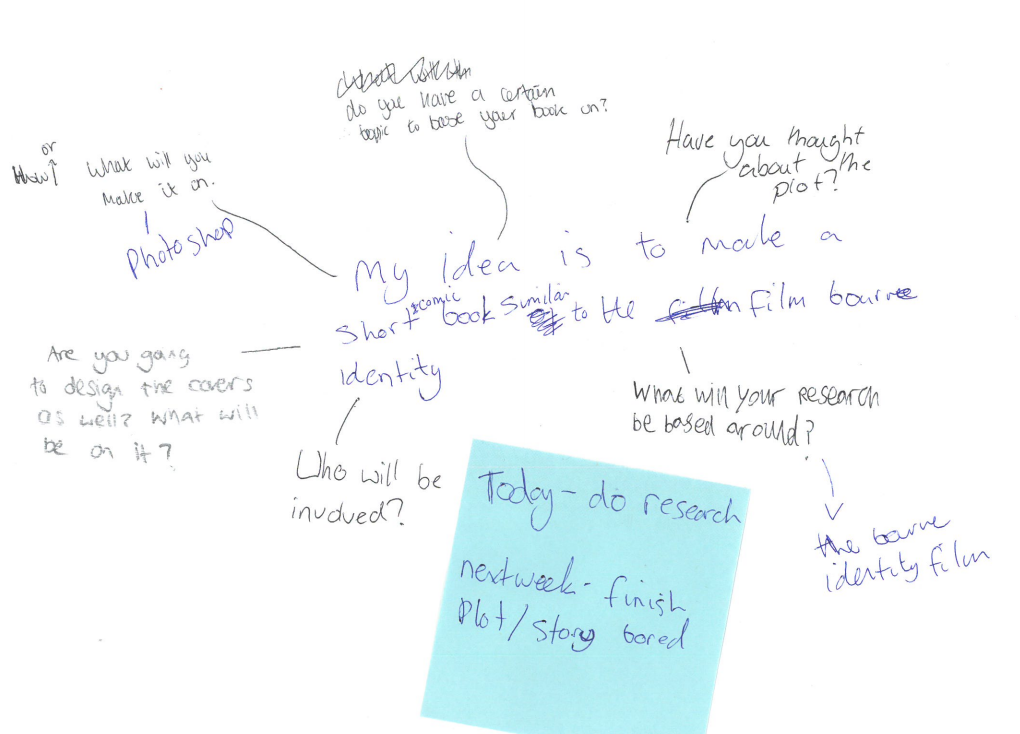 do you have a certain
topic to base your book on?
Have you thought
about the
plot?
or
How
What will you
make it on.
Photoshop
My idea is to make a
short comic book similar to the film bourne
identity
Are you going
to design the covers
as well? What will
be on it?
What will your research
be based around?
the bourne
identity film
Who will be
involved?
Today - do research
next week - finish
Plot / Story bored